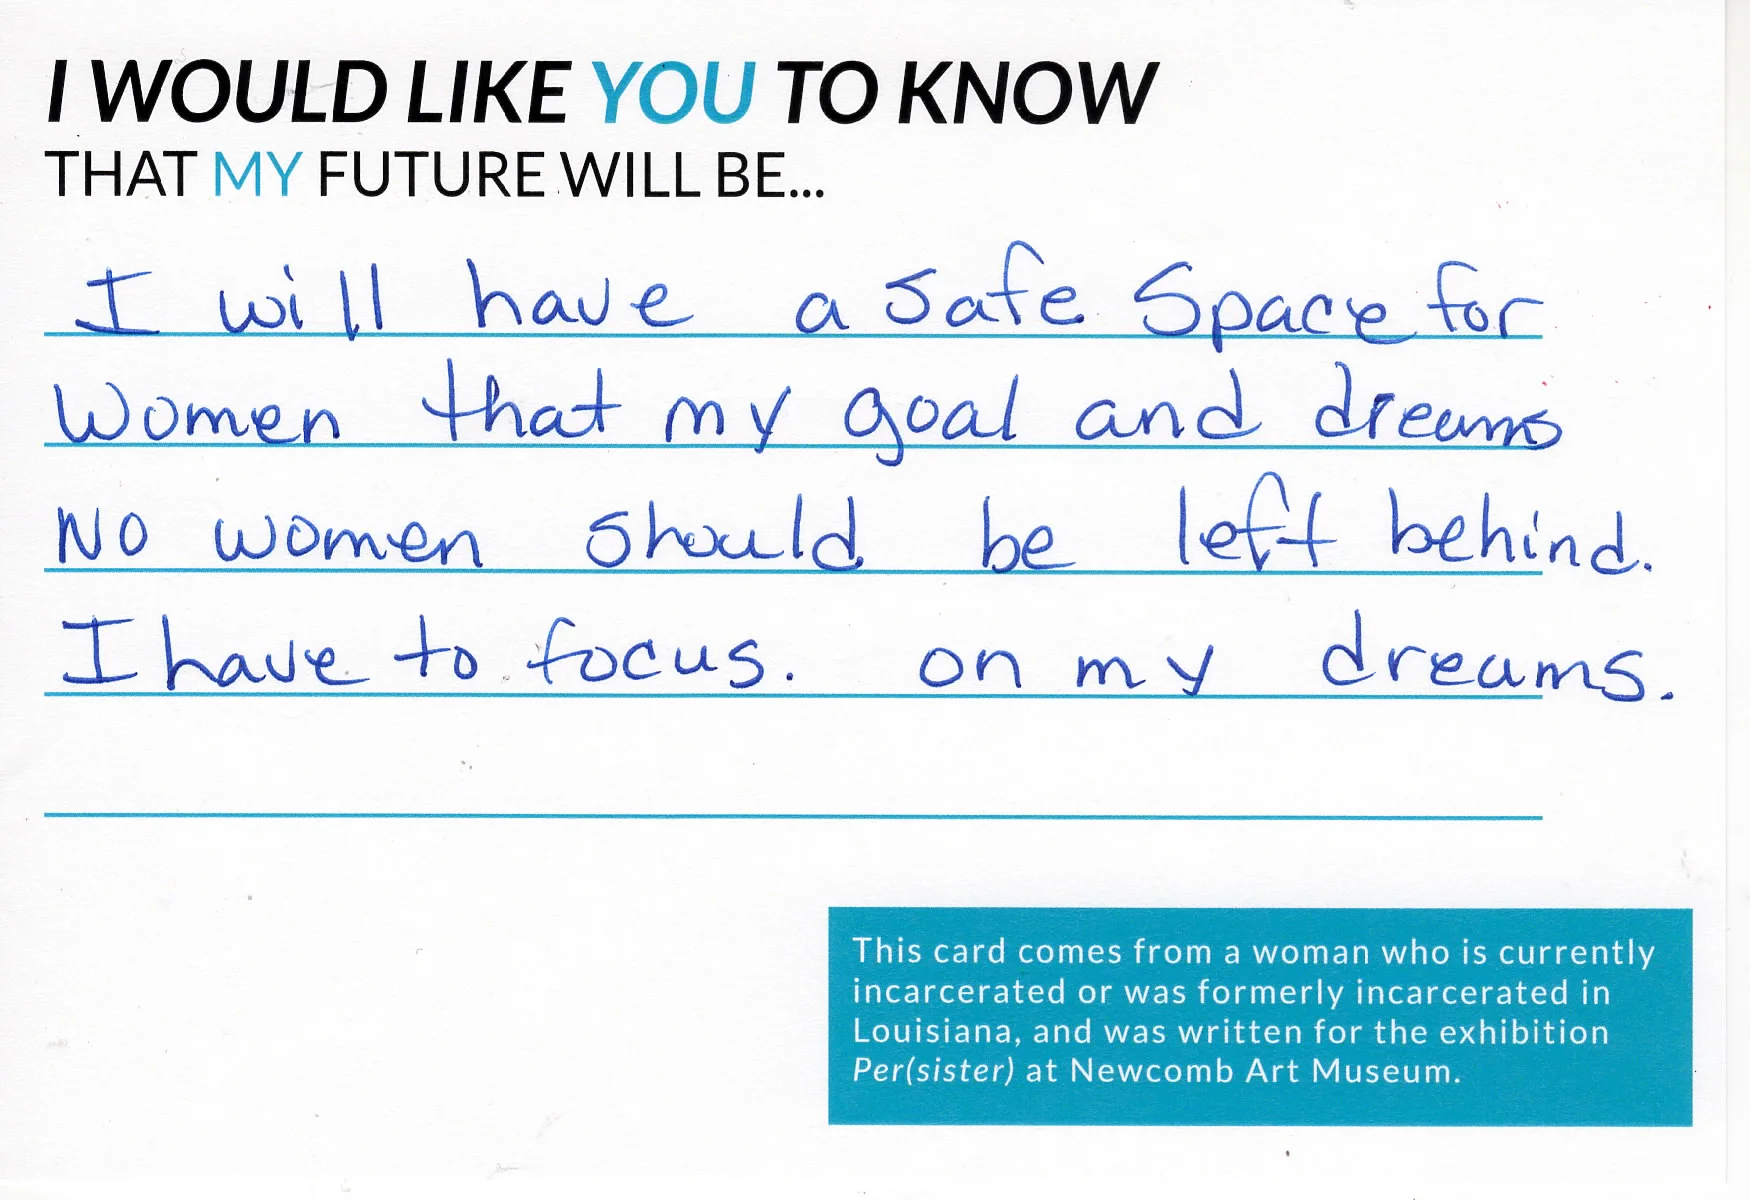 I WOULD LIKE YOU TO KNOW
THAT MY FUTURE WILL BE...
I will have a safe Space for
Women that my goal and dreams
NO women should be left behind.
I have to focus. on my dreams.
This card comes from a woman who is currently
incarcerated or was formerly incarcerated in
Louisiana, and was written for the exhibition
Per(sister) at Newcomb Art Museum.